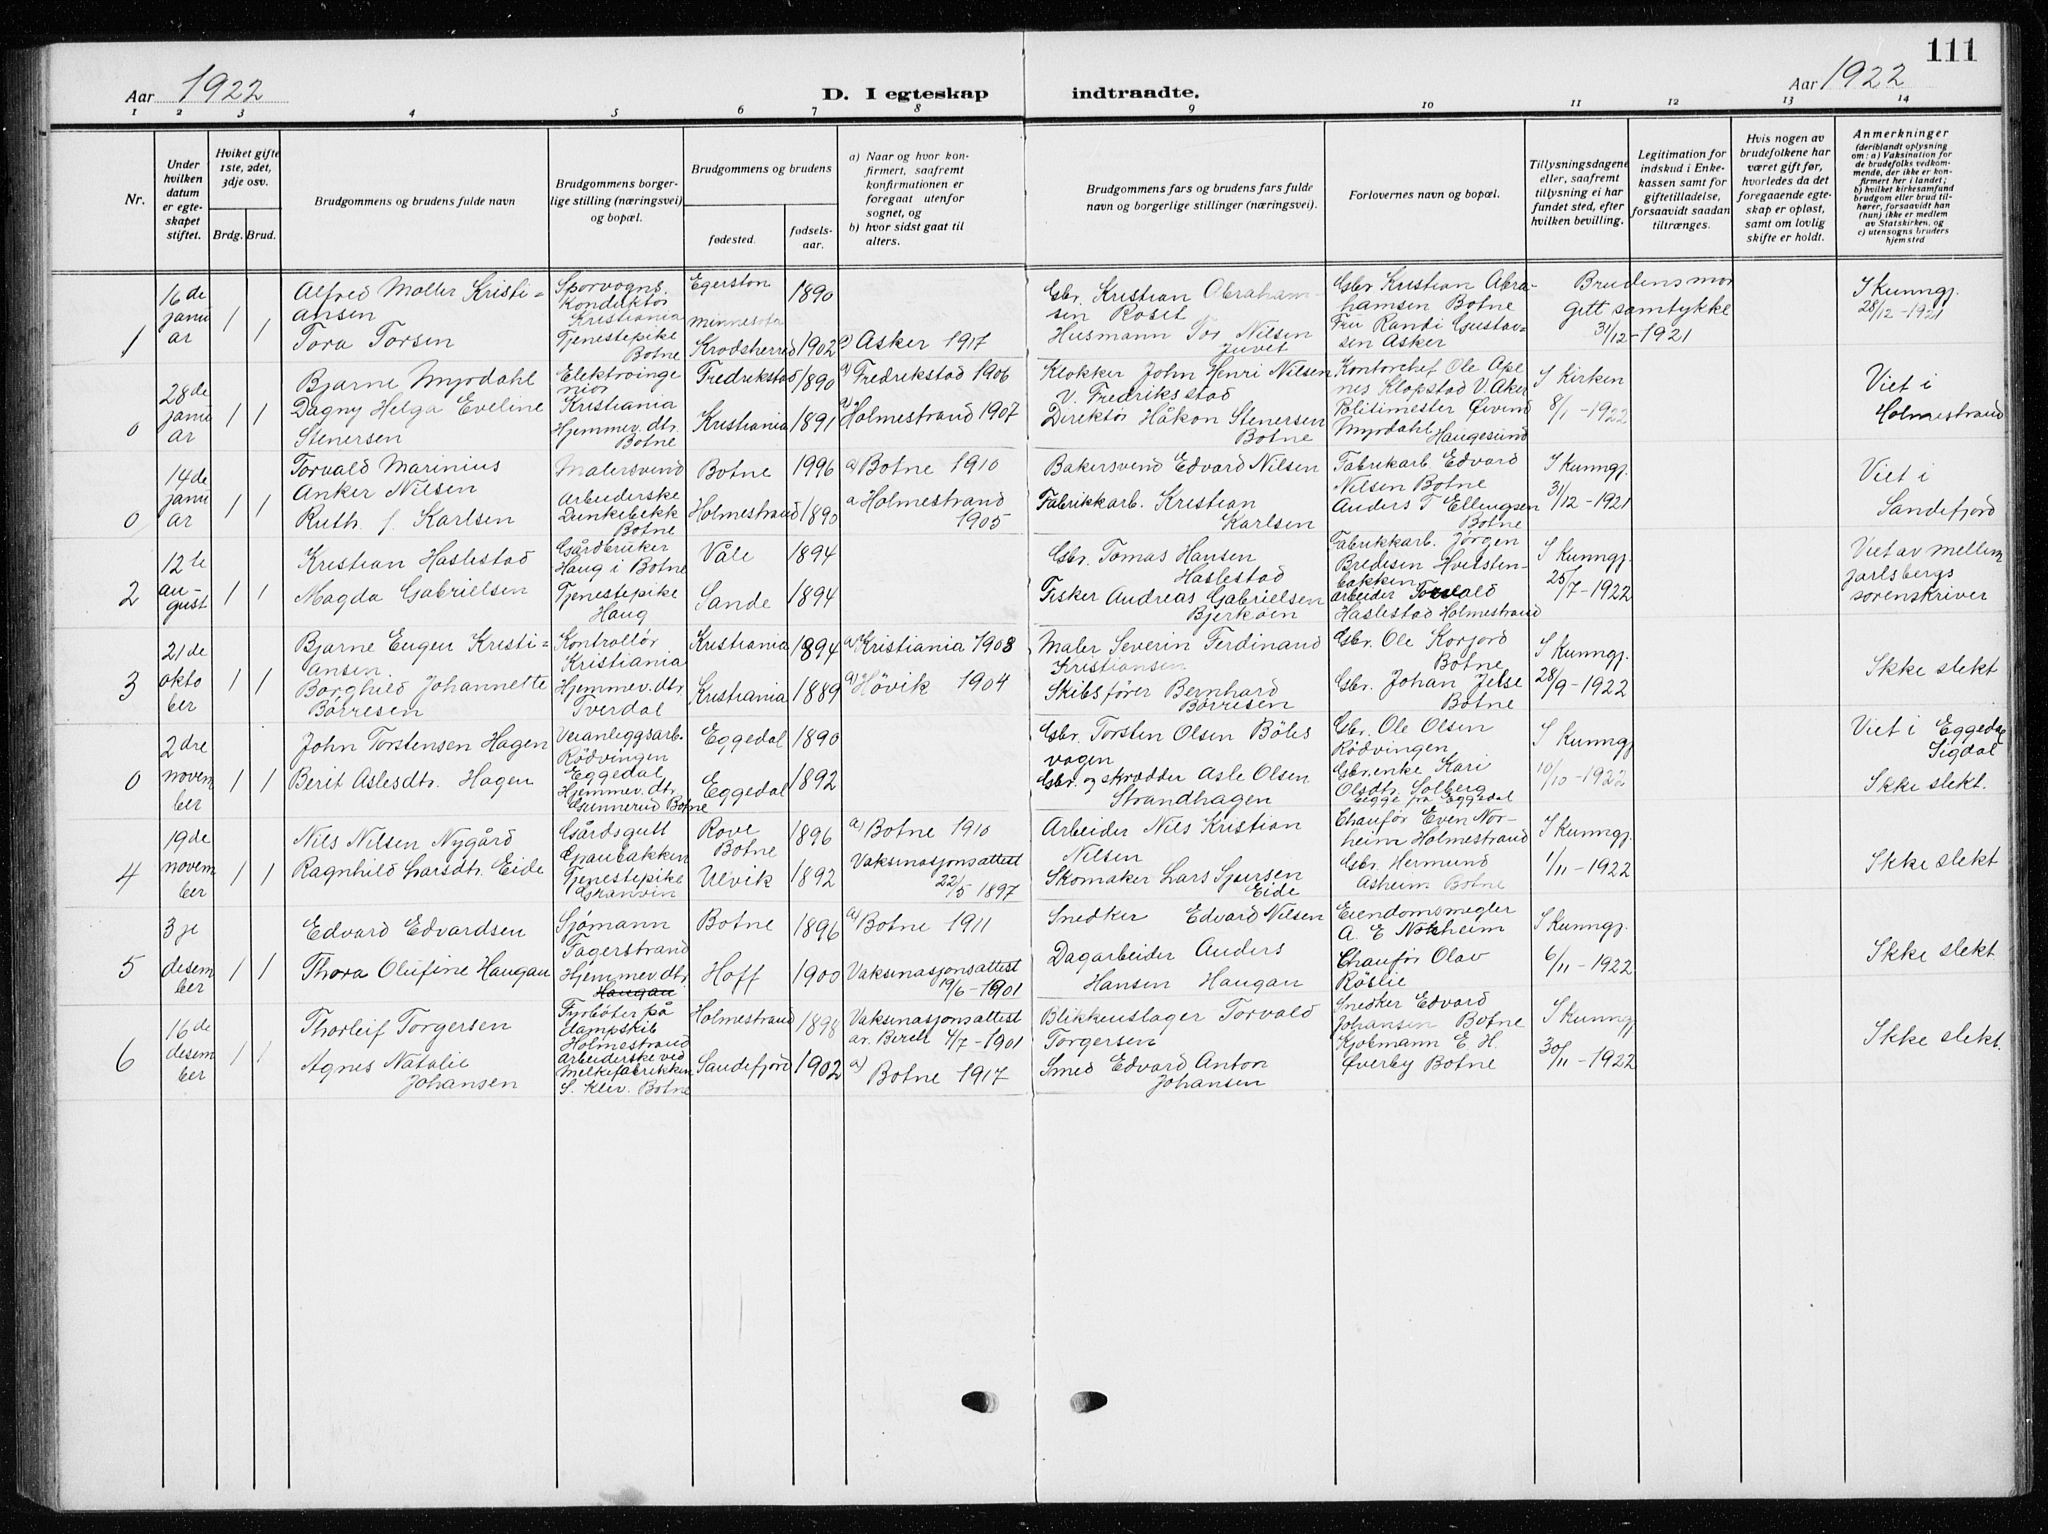 111
Aar 1922
D. I egteskap indtraadte.
Aar 1922
1 2 3 4 5 6 7 8 9 10 11 12 13 14
Nr.
Under hvilken datum er egteskapet stiftet.
Hviket gifte 1ste, 2det, 3dje osv.
Brdg. Brud.
Brudgommens og brudens fulde navn
Brudgommens borgerlige stilling (næringsvei) og bopæl.
Brudgommens og brudens
fødested.
fødselsaar.
a) Naar og hvor konfirmert, saafremt konfirmationen er foregaat utenfor sognet, og
b) hvor sidst gaat til alters.
Brudgommens fars og brudens fars fulde navn og borgerlige stillinger (næringsvei).
Forlovernes navn og bopæl.
Tillysningsdagene eller, saafremt tillysning ei har fundet sted, efter hvilken bevilling.
Legitimation for indskud i Enkekassen samt for giftetilladelse, forsaavidt saadan tiltrænges.
Hvis nogen av brudefolkene har været gift før, hvorledes da det foregaaende egteskap er opløst, samt om lovlig skifte er holdt.
Anmerkninger (deriblandt oplysning om: a) Vaksination for de brudefolks vedkommende, der ikke er konfirmert her i landet; b) hvilket kirkesamfund brudgom eller brud tilhører, forsaavidt han (hun) ikke er medlem av Statskirken, og c) utensogns bruders hjemsted
1
16de januar
1 1
Alfred Møller Kristiansen
Tora Torsen
Sporvogns. Konduktør Kristiania
Tjenestepike Botne
Egerston
Minnesota
Krodsherred
1890
1902
a) Asker 1917
Gbr. Kristian Abrahamsen Roset
Husmann Tor Nilsen Juvet
Gbr Kristian Abrahamsen Botne
Fru Randi Gustavsen Asker
Brudens mor gitt samtykke 31/12-1921
I Kunngj. 28/12-1921
0
28de januar
1 1
Bjarne Myrdahl
Dagny Helga Eveline Stenersen
Elektroingeniør Kristiania
Hjemmev. dtr. Botne
Fredrikstad
Kristiania
1890
1891
a) Fredrikstad 1906
a) Holmestrand 1907
Klokker John Henri Nilsen V. Fredriksstad
Direktør Håkon Stenersen Botne
Kontorchef Ole Apenes Klopstad V Aker
Politimester Øivind Myrdahl Haugesund
I Kirken 8/1-1922
Viet i Holmestrand
0
14de januar
1 1
Torvald Marinius Anker Nilsen
Ruth f. Karlsen
Malersvend
Arbeiderske Dunkebekk Botne
Botne
Holmestrand
1996
1890
a) Botne 1910
a Holmestrand 1905
Bakersvend Edvard Nilsen
Fabrikkarb. Kristian Karlsen
Fabrikarb Edvard Nilsen Botne
Anders T Ellingsen Botne
I Kunngj. 31/12-1921
Viet i Sandefjord
2
12te august
1 1
Kristian Haslestad
Magda Gabrielsen
Gårdbruker Haug i Botne
Tjenestepike Haug
Våle
Sande
1894
1894
Gbr. Tomas Hansen Haslestad
Fisker Andreas Gabrielsen Bjerkøen
Fabrikkarb. Jørgen Bredesen Hvitstenbakken
arbeider Torvald Haslestad Holmestrand
I Kunngj. 25/7-1922
Viet av mellem jarlsbergs sorenskriver
3
21de oktober
1 1
Bjarne Eugen Kristiansen
Borghild Johannette Børresen
Kontrollør Kristiania
Hjemmev. dtr Tverdal
Kristiania
Kristiania
1894
1889
a) Kristiania 1908
a) Høvik 1904
Maler Severin Ferdinand Kristiansen
Skibsfører Bernhard Børresen
Gbr. Ole Korjord Botne
Gbr. Johan Jelse Botne
I Kunngj. 28/9-1922
Ikke slekt
0
2dre november
1 1
John Torstensen Hagen
Berit Aslesdtr. Hagen
Veranleggsarb. Rödvingen Eggedal
Hjemmev. dtr Gunnerud Botne
Eggedal
Eggedal
1890
1892
Gbr. Torsten Olsen Böles vogen
Gbr. og skrædder Asle Olsen Strandhagen
Gbr. Ole Olsen Rödvingen
Gbr.enke Kari Olsdtr. Solberg Eegge fra Eggedal
I Kunngj 10/10-1922
Viet i Eggedal Sigdal
Ikke slekt.
4
19de november
1 1
Nils Nilsen Nygård
Ragnhild Larsdtr. Eide
Gårdsgutt Graubakken
Tjenestepike Granvin
Rove Botne
Ulvik
1896
1892
a) Botne 1910
Vaksinasjonsattest 22/5 1897
Arbeider Nils Kristian Nilsen
Skomaker Lars Sjursen Eide
Chaufør Even Norheim Holmestrand
Gbr. Hermund Asheim Botne
I Kunngj. 1/11-1922
Ikke slekt
5
3je desember
1 1
Edvard Edvardsen
Thora Olufine Haugan
Sjømann Fagerstrand
Hjemmev. dtr Haugan
Botne
Hoff
1896
1900
a) Botne 1911
Vaksinasjonsattest 19/6-1901
Snedker Edvard Nilsen
Dagarbeider Anders Hansen Haugan
Eiendomsmegler A. E Norheim
Chaufør Olav Røslie
I Kunngj. 6/11-1922
Ikke slekt
6
16de desember
1 1
Thorleif Torgersen
Agnes Natalie Johansen
Fyrbøter på dampskib Holmestrand
Arbeiderske ved Melkefabrikken S. Klev. Botne
Holmestrand
Sandefjord
1898
1902
Vaksinasjonsattest av. Berch 4/7-1901
a) Botne 1917
Blikkenslager Torvald Torgersen
Smed Edvard Anton Johansen
Snedker Edvard Johansen Botne
Kjøbmann E. H. Øverby Botne
I Kunngj 30/11-1922
Ikke slekt.